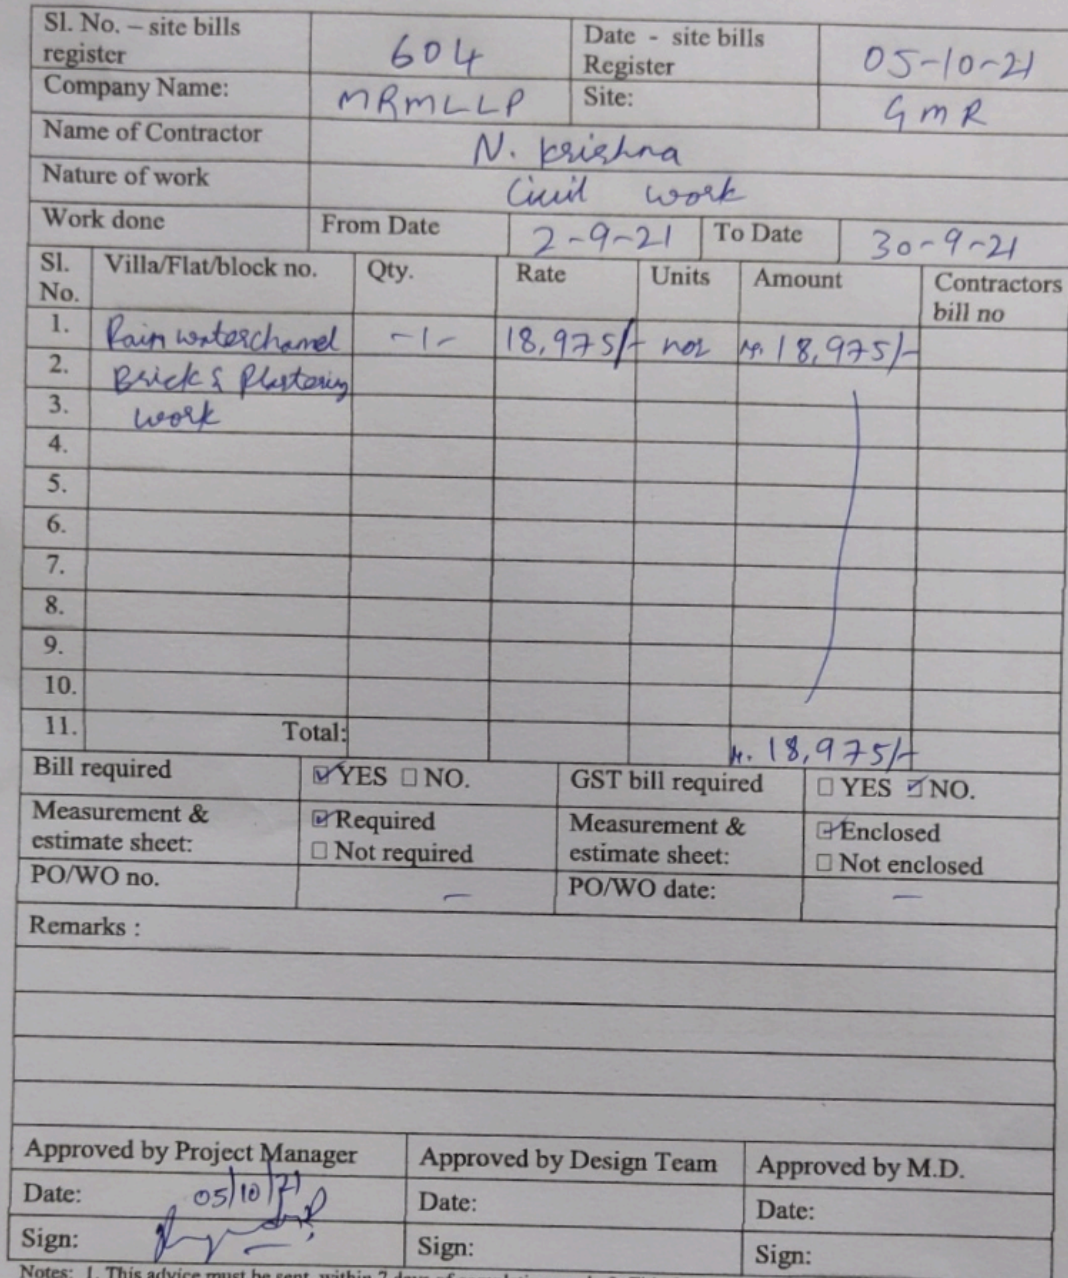 Sl. No. – site bills register 604 Date - site bills Register 05-10-21
Company Name: MRMLLP Site: GMR
Name of Contractor N. Krishna
Nature of work Civil work
Work done From Date 2-9-21 To Date 30-9-21
Sl. No. Villa/Flat/block no. Qty. Rate Units Amount Contractors bill no
1. Rain waterchannel -1- 18,975/- nos 18,975/-
2. Brick & Plastering
3. work
4.
5.
6.
7.
8.
9.
10.
11. Total: 18,975/-
Bill required ☑ YES ☐ NO. GST bill required ☐ YES ☑ NO.
Measurement & estimate sheet: ☑ Required ☐ Not required Measurement & estimate sheet: ☑ Enclosed ☐ Not enclosed
PO/WO no. – PO/WO date: –
Remarks :
Approved by Project Manager Approved by Design Team Approved by M.D.
Date: 05/10/21 Date: Date:
Sign: Sign: Sign:
Notes: 1. This advice must be sent within 7 days of